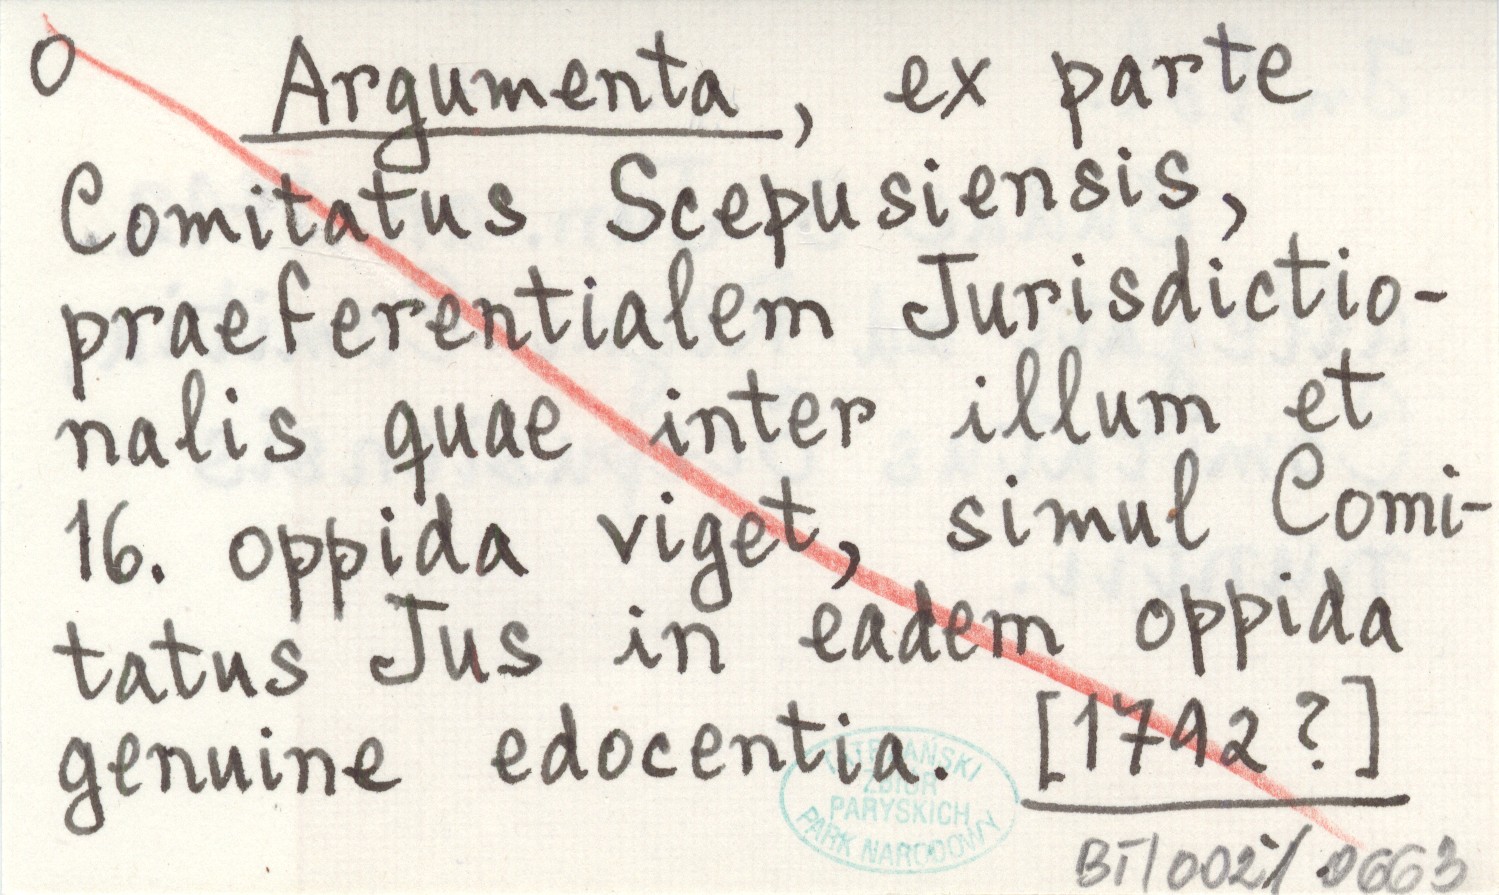 O Argumenta, ex parte
Comitatus Scepusiensis,
praeferentialem Jurisdictio-
nalis quae inter illum et
16. oppida viget, simul Comi-
tatus Jus in eadem oppida
genuine edocentia. [1792?]
TATRZAŃSKI
ZBIÓR
PARYSKICH
PARK NARODOWY
BT/002/0663